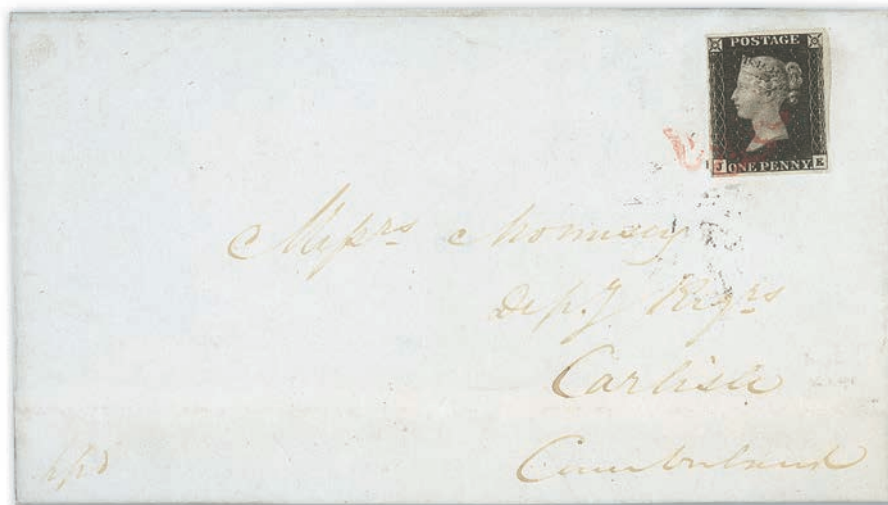 POSTAGE
J ONE PENNY E
Messrs Mounsey
Dep.y Regrs
Carlisle
Cumberland